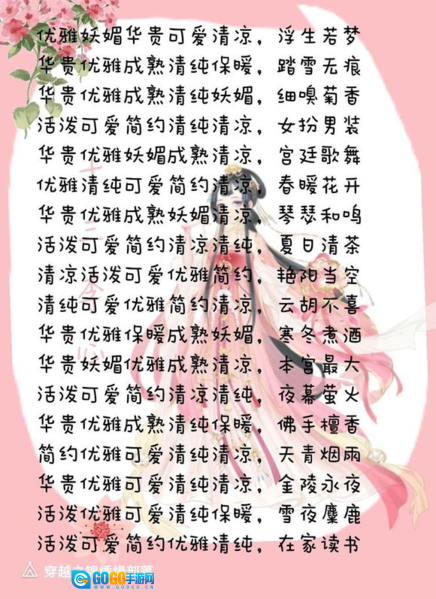 优雅妖媚华贵可爱清凉，浮生若梦
华贵优雅成熟清纯保暖，踏雪无痕
华贵优雅成熟清纯妖媚，细嗅菊香
活泼可爱简约清纯清凉，女扮男装
华贵优雅妖媚成熟清凉，宫廷歌舞
优雅清纯可爱简约清凉，春暖花开
华贵优雅成熟妖媚清凉，琴瑟和鸣
活泼可爱简约清凉清纯，夏日清茶
清凉活泼可爱优雅简约，艳阳当空
清纯可爱优雅简约清凉，云胡不喜
华贵优雅保暖成熟妖媚，寒冬煮酒
华贵妖媚优雅成熟清凉，本宫最大
活泼可爱简约清凉清纯，夜幕萤火
华贵优雅成熟清纯保暖，佛手檀香
简约优雅可爱清纯清凉，天青烟雨
华贵优雅可爱清纯清凉，金陵永夜
活泼优雅可爱清纯保暖，雪夜麋鹿
活泼可爱简约优雅清纯，在家读书
GOGO手游网